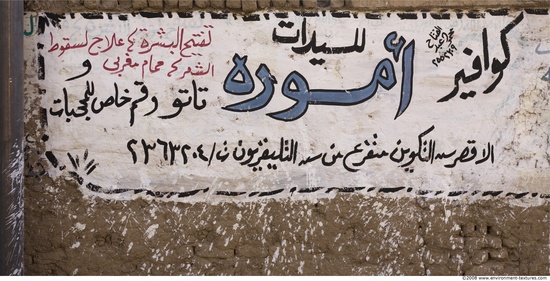 كوافير
أموره
للسيدات
لتفتيح البشرة كـ علاج لسقوط
الشعر كـ حمام مغربي
و
تاتو وقم خاص للمحجبات
الاقصر ش التليفزيون ت/ ٢٣٦٣٢٠٤
©2008 www.environment-textures.com